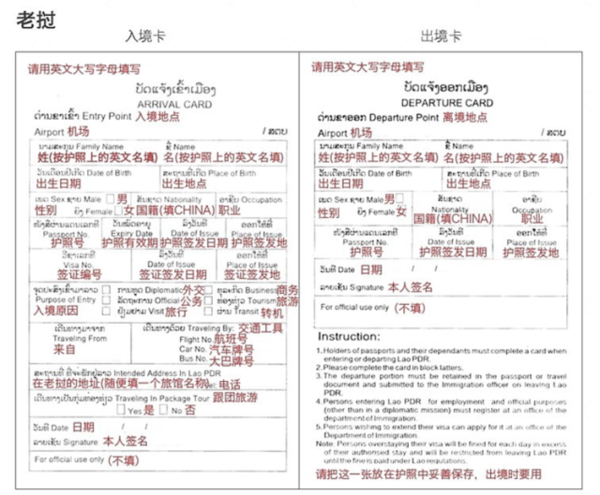 老挝
入境卡
出境卡
请用英文大写字母填写
ບັດແຈ້ງເຂົ້າເມືອງ
ARRIVAL CARD
ດ່ານຂາເຂົ້າ Entry Point 入境地点
Airport 机场
/ ສຕຍ
ນາມສະກຸນ Family Name ຊື່ Name
姓(按护照上的英文名填) 名(按护照上的英文名填)
ວັນເດືອນປີເກີດ Date of Birth ສະຖານທີ່ເກີດ Place of Birth
出生日期 出生地点
ເພດ Sex ຊາຍ Male 男 ສັນຊາດ Nationality ອາຊີບ Occupation
性别 ຍິງ Female 女 国籍(填CHINA) 职业
Passport No. Expiry Date Date of Issue Place of Issue
护照号 护照有效期 护照签发日期 护照签发地
Visa No. Date of Issue Place of Issue
签证编号 签证签发日期 签证签发地
ຈຸດປະສົງເຂົ້າມາລາວ ການທູດ Diplomatic 外交 ທຸລະກິດ Business 商务
Purpose of Entry ລັດຖະການ Official 公务 ທ່ອງທ່ຽວ Tourism 旅游
入境原因 ຢ້ຽມຢາມ Visit 旅行 ຜ່ານ Transit 转机
ເດີນທາງມາຈາກ ເດີນທາງດ້ວຍ Traveling By: 交通工具
Traveling From Flight No. 航班号
来自 Car No. 汽车牌号
Bus No. 大巴牌号
Intended Address in Lao PDR
在老挝的地址(随便填一个旅馆名称) Tel: 电话
Traveling in Package Tour 跟团旅游
Yes 是 No 否
ວັນທີ Date 日期 / /
ລາຍເຊັນ Signature 本人签名
For official use only (不填)
请用英文大写字母填写
ບັດແຈ້ງອອກເມືອງ
DEPARTURE CARD
ດ່ານຂາອອກ Departure Point 离境地点
Airport 机场
/ ສຕຍ
ນາມສະກຸນ Family Name ຊື່ Name
姓(按护照上的英文名填) 名(按护照上的英文名填)
ວັນເດືອນປີເກີດ Date of Birth ສະຖານທີ່ເກີດ Place of Birth
出生日期 出生地点
ເພດ Sex ຊາຍ Male 男 ສັນຊາດ ອາຊີບ
性别 ຍິງ Female 女 Nationality Occupation
国籍(填CHINA) 职业
Passport No. Date of Issue Place of Issue
护照号 护照签发日期 护照签发地
ວັນທີ Date 日期 / /
ລາຍເຊັນ Signature 本人签名
For official use only (不填)
Instruction:
1.Holders of passports and their dependants must complete a card when
entering or departing Lao PDR.
2.Please complete the card in block latters.
3.The departure portion must be retained in the passport or travel
document and submitted to the Immigration officer on leaving Lao
PDR.
4.Persons entering Lao PDR for employment and official purposes
(other than in a diplomatic mission) must register at an office of the
department of Immigration.
5.Persons wishing to extend their visa can apply for it at an office of the
Department of Immigration.
Note: Persons overstaying their visa will be fined for each day in excess
of their authorised stay and will be restricted from leaving Lao PDR
until the fine is paid under Lao regulations.
请把这一张放在护照中妥善保存，出境时要用